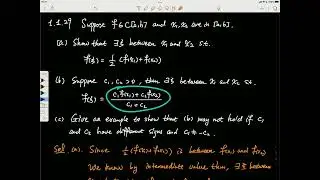 1.1.29 Suppose f ∈ C[a,b] and x₁, x₂ are in [a,b].
(a) Show that ∃ ξ between x₁ and x₂ s.t.
f(ξ) = ½ (f(x₁)+f(x₂))
(b) Suppose c₁, c₂ >0, then ∃ ξ between x₁ and x₂ s.t.
f(ξ) = (c₁f(x₁)+c₂f(x₂)) / (c₁+c₂)
(c) Give an example to show that (b) may not hold if c₁
and c₂ have different signs and c₁ ≠ -c₂.
Sol (a). Since ½(f(x₁)+f(x₂)) is between f(x₁) and f(x₂)
We know by intermediate value thm, ∃ ξ between